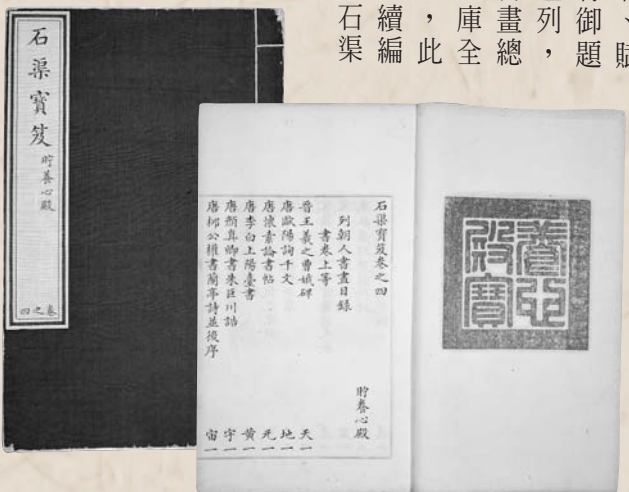 賦
御題
列，
畫總
庫全
，此
續編
石渠
石渠寶笈
貯養心殿
卷之四
養心殿寶
石渠寶笈卷之四
貯養心殿
列朝人書畫目錄
書卷上等
晉王羲之曹娥碑 天一
唐歐陽詢千文 地一
唐懷素論書帖 元一
唐李白上陽臺書 黃一
唐顏真卿書朱巨川誥 宇一
唐柳公權書蘭亭詩並後序 宙一